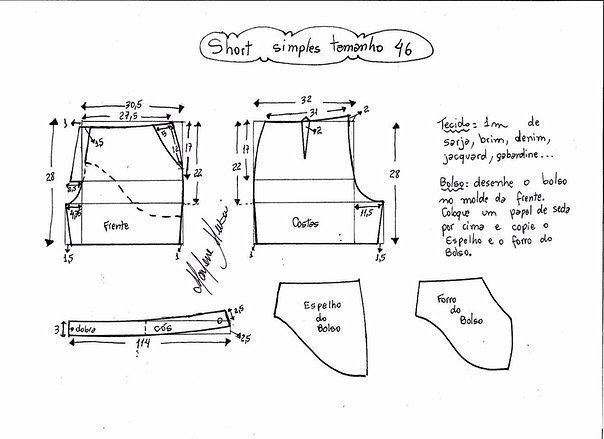 Short simples tamanho 46
30,5
27,5
1
3,5
5
12
17
22
28
5,5
4,25
Frente
1,5
1
32
31
2
2
17
22
28
Costas
11,5
1
1,5
Tecido: 1m de
sarja, brim, denim,
jacquard, gabardine...
Bolso: desenhe o bolso
no molde da frente.
Coloque um papel de seda
por cima e copie o
Espelho e o forro do
Bolso.
3
dobra
cós
2,5
2,5
114
Espelho
do
Bolso
Forro
do
Bolso